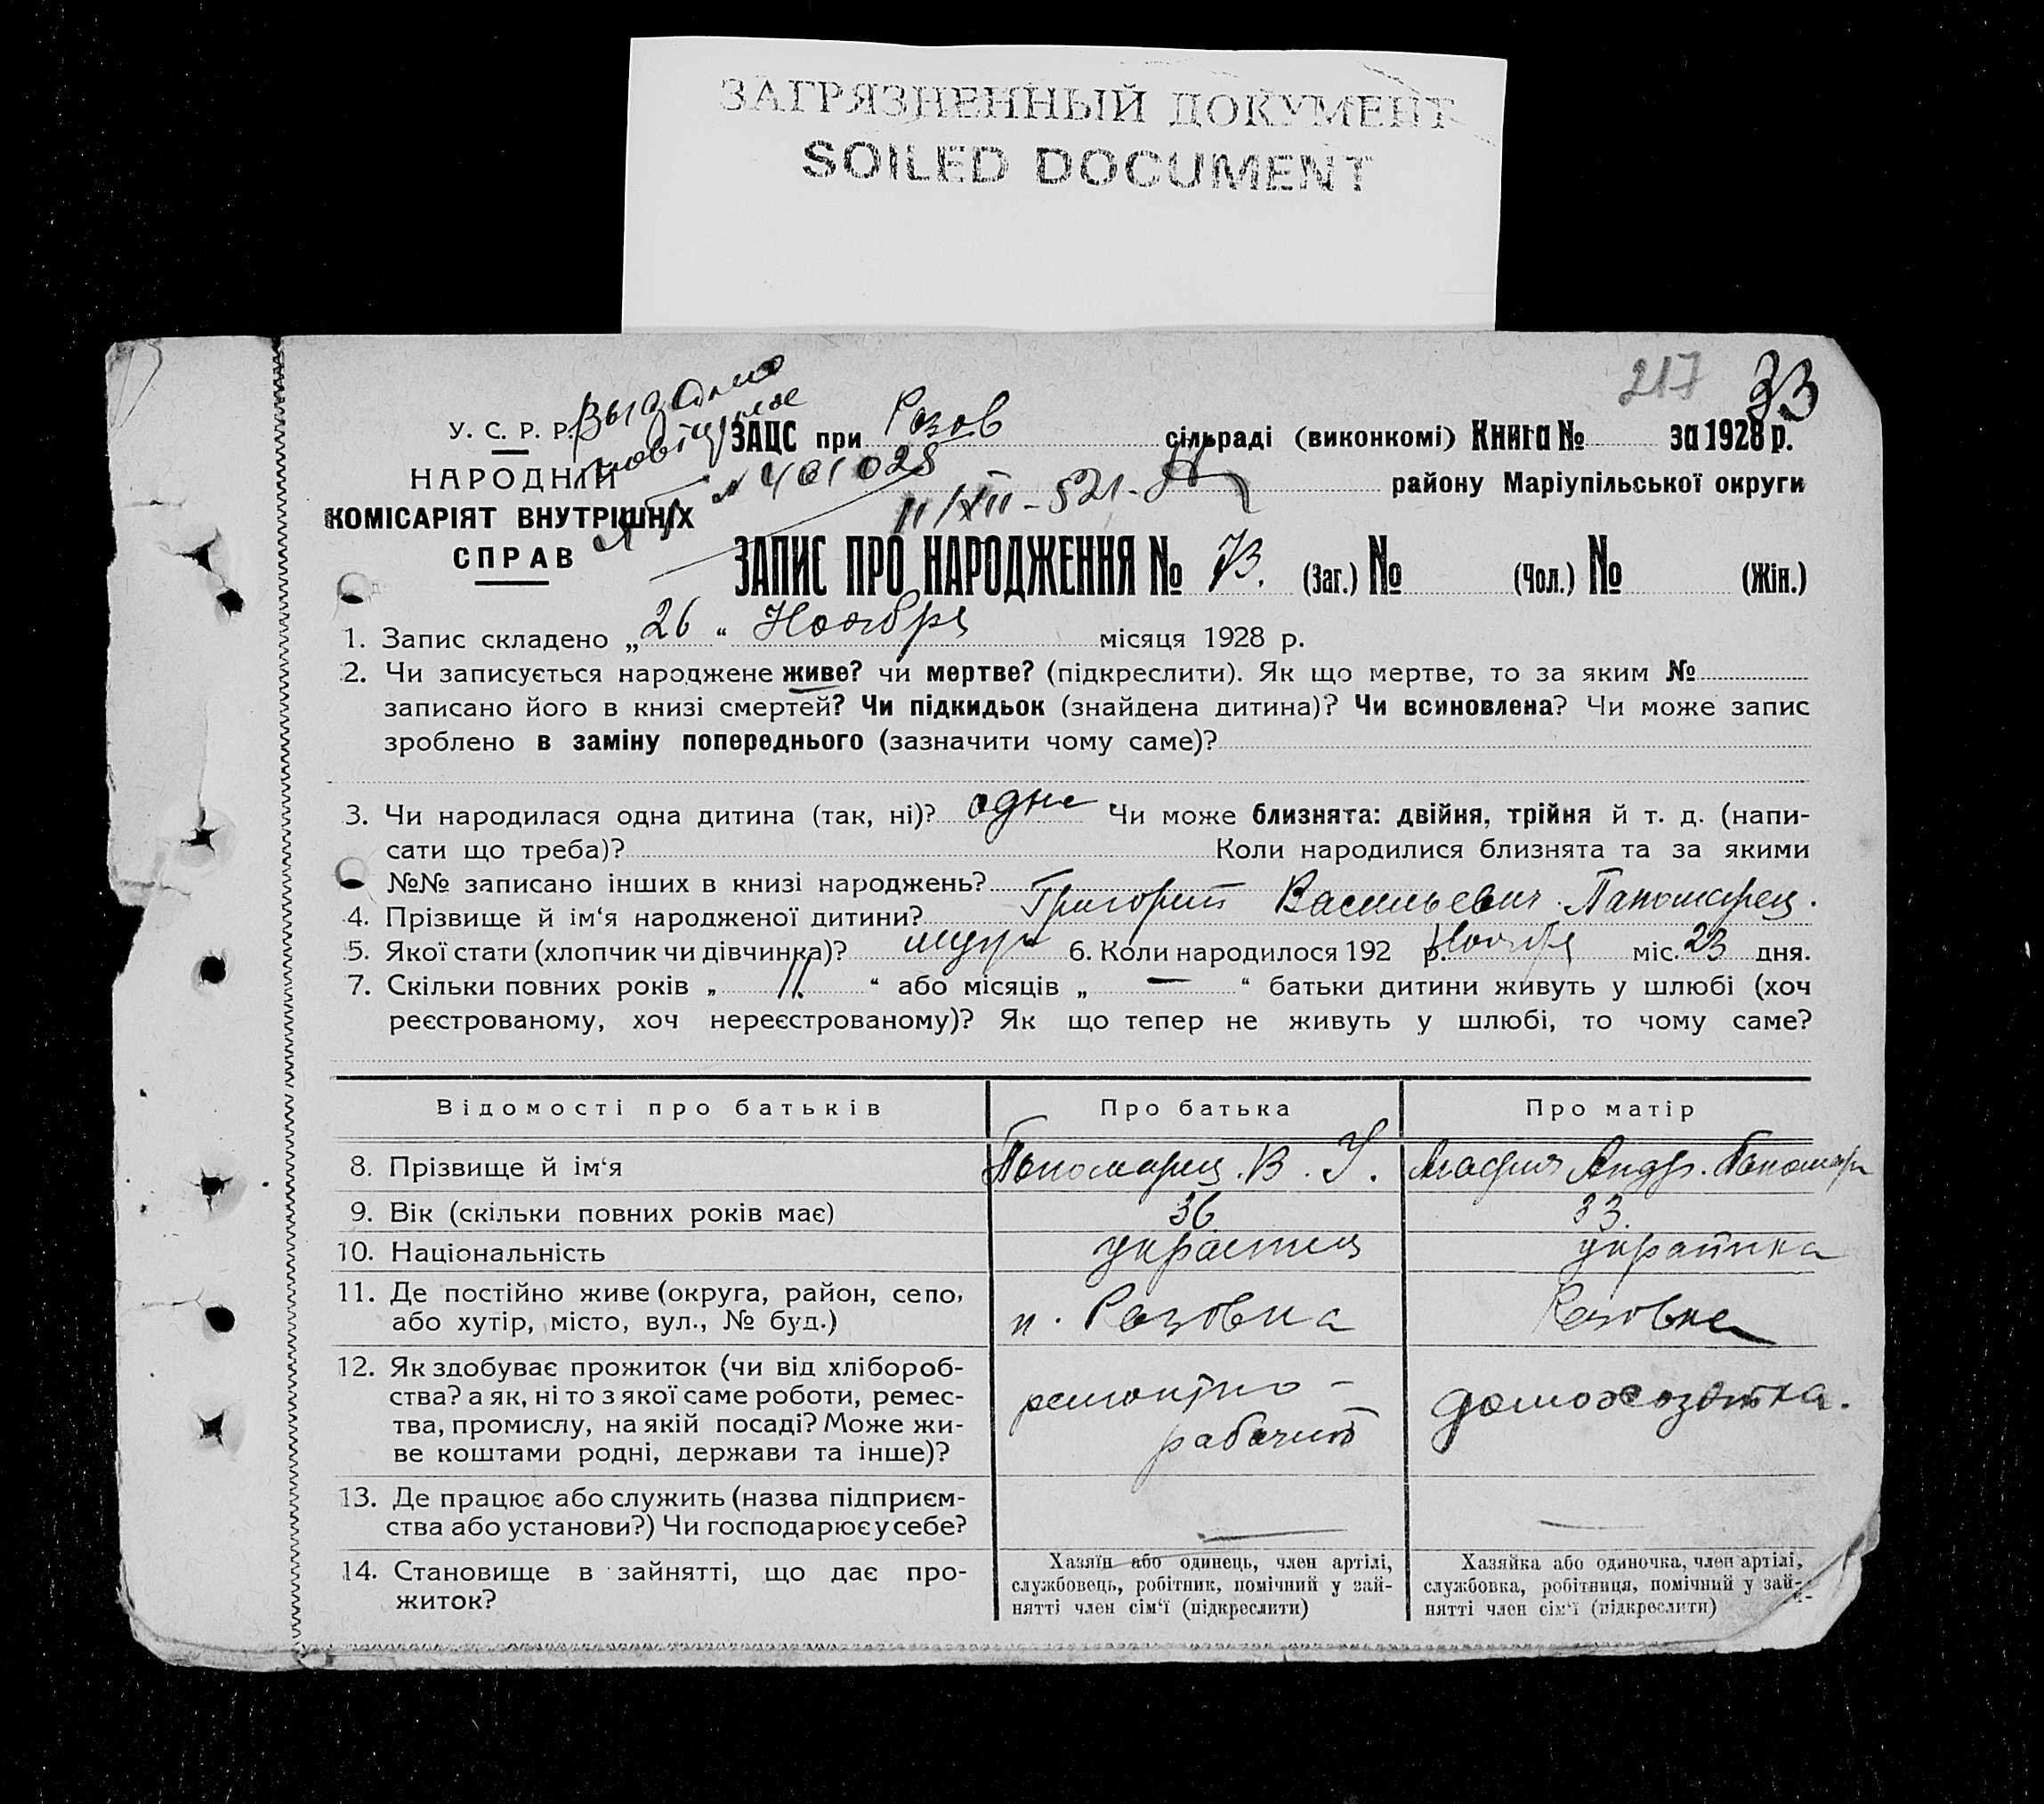 ЗАГРЯЗНЕННЫЙ ДОКУМЕНТ
SOILED DOCUMENT
217 33
У. С. Р. Р. Выдано
ЗАЦС при Розов сільраді (виконкомі) Книга № за 1928 р.
НАРОДНІЙ № 401028
району Маріупільської округи
КОМІСАРІЯТ ВНУТРІШНІХ
СПРАВ
ЗАПИС ПРО НАРОДЖЕННЯ № (Заг.) № (Чол.) № (Жін.)
1. Запис складено „ 26 “ Ноября місяця 1928 р.
2. Чи записується народжене живе? чи мертве? (підкреслити). Як що мертве, то за яким №
записано його в книзі смертей? Чи підкидьок (знайдена дитина)? Чи всиновлена? Чи може запис
зроблено в заміну попереднього (зазначити чому саме)?
3. Чи народилася одна дитина (так, ні)? одне Чи може близнята: двійня, трійня й т. д. (напи-
сати що треба)? Коли народилися близнята та за якими
№№ записано інших в книзі народжень?
4. Прізвище й ім‘я народженої дитини? Григорий Васильевич Паномарец.
5. Якої стати (хлопчик чи дівчинка)? муж 6. Коли народилося 192 р. Ноября міс. 23 дня.
7. Скільки повних років „ 11. “ або місяців „ — “ батьки дитини живуть у шлюбі (хоч
реєстрованому, хоч нереєстрованому)? Як що тепер не живуть у шлюбі, то чому саме?
Відомості про батьків Про батька Про матір
8. Прізвище й ім‘я Паномарец. В. У. Мария Андр. Паномар
9. Вік (скільки повних років має) 36 33.
10. Національність украинец украинка
11. Де постійно живе (округа, район, село,
або хутір, місто, вул., № буд.) п. Розовка Розовка
12. Як здобуває прожиток (чи від хлібороб-
ства? а як, ні то з якої саме роботи, ремес- ремонтно- домохозяйка.
тва, промислу, на якій посаді? Може жи- рабочий
ве коштами родні, держави та інше)?
13. Де працює або служить (назва підприєм-
ства або установи?) Чи господарює у себе? — —
14. Становище в зайнятті, що дає про-
житок?
Хазяїн або одинець, член артілі,
службовець, робітник, помічний у зай-
нятті член сім‘ї (підкреслити)
Хазяйка або одиночка, член артілі,
службовка, робітниця, помічний у зай-
нятті член сім‘ї (підкреслити)